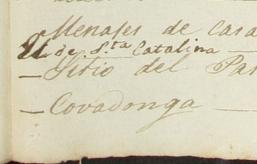 Menajes de Casa
de S.ta Catalina
— Sitio del Pas
— Covadonga —